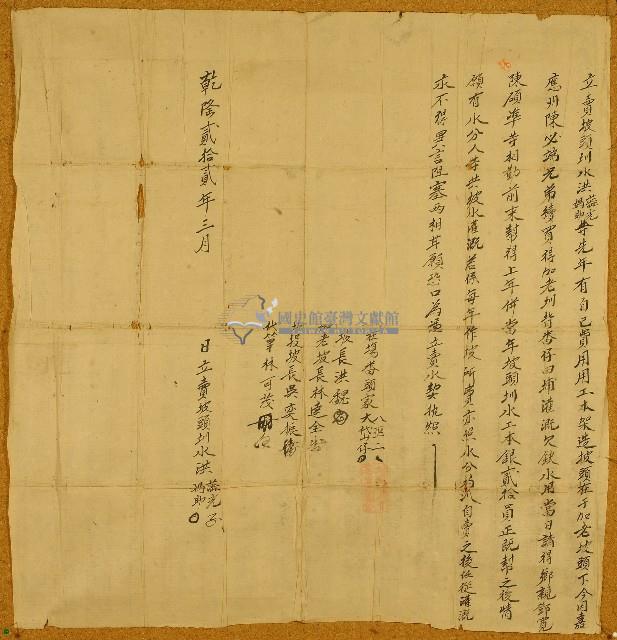 立賣坡頭圳水洪蕋光媽助等先年有自己費用用工本架造坡頭在于加老坡頭下今因嘉
應州陳必瑞兄弟等買得加老圳背崙仔田埔灌溉欠缺水用當日請得鄉親鄧覓
陳碩準等相勸前來幫得上年併當年坡頭圳水工本銀貳拾員正既幫之後情
願有水分人等共坡水灌溉若係每年作坡所費亦照水分均派自賣之後任從灌溉
永不得異言阻塞兩相甘願恐口為憑立賣水契執照
在場番頭家大
坡長洪魏
老坡長林達全
投坡長吳奕振
代筆林可茂
乾隆貳拾貳年三月
日立賣坡頭圳水洪蕋光媽助
國史館臺灣文獻館
TAIWAN HISTORICA